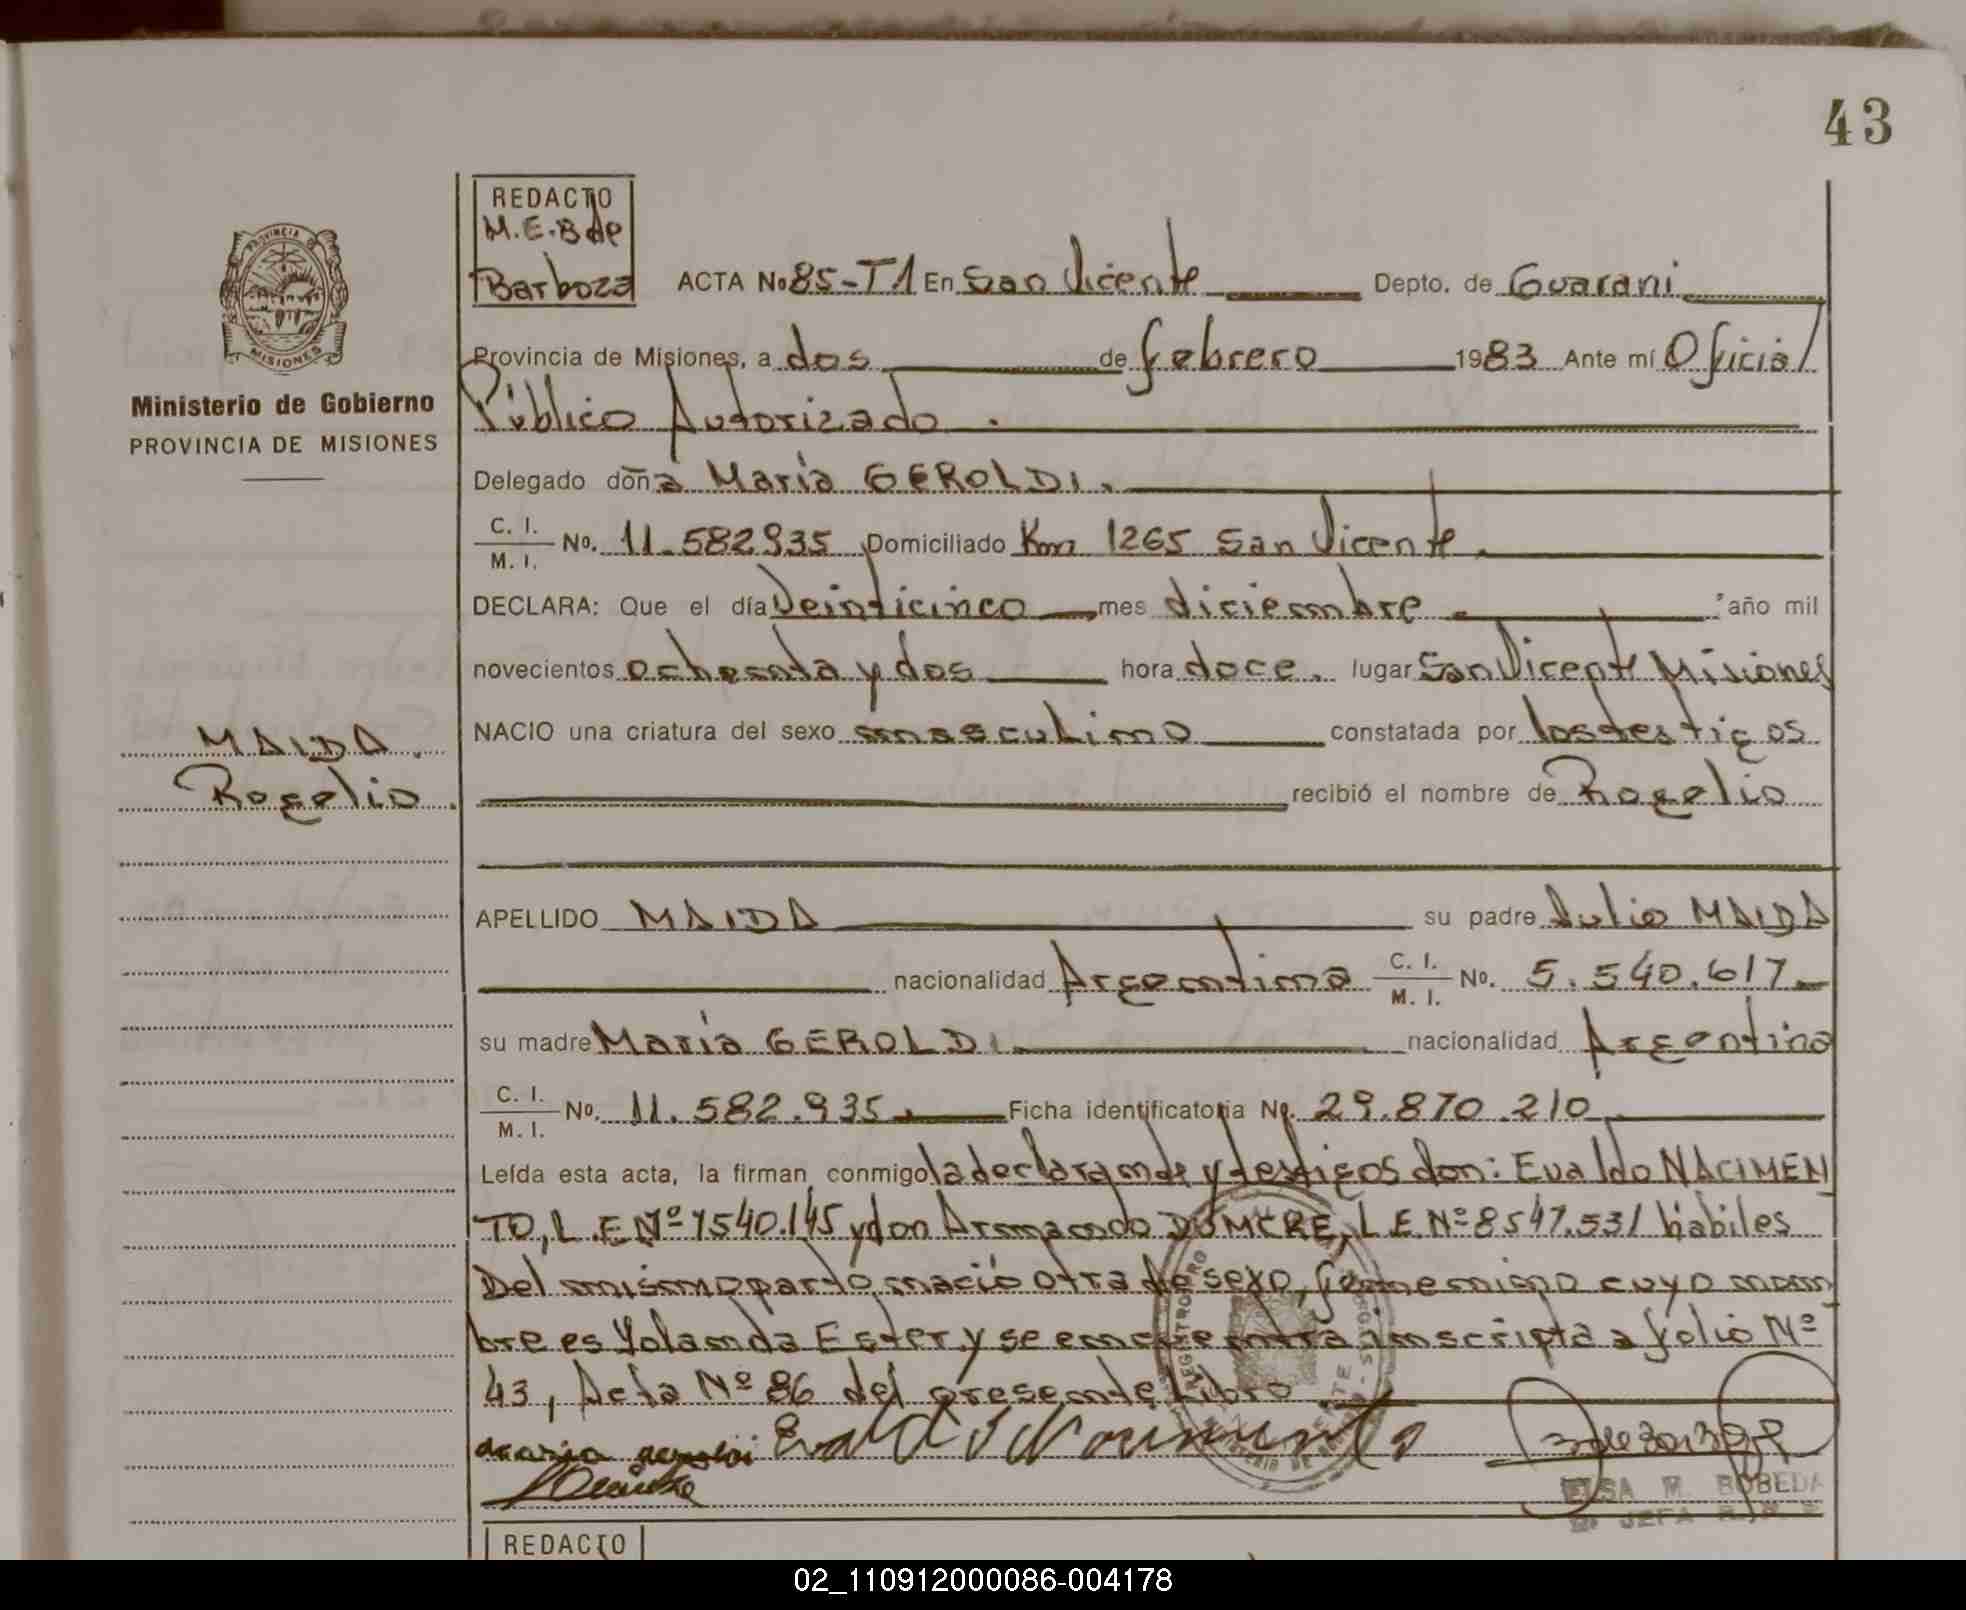 43
REDACTO
M.E.B de
Barboza
ACTA No 85-T1 En San Vicente Depto. de Guarani
Provincia de Misiones, a dos de febrero 1983 Ante mí Oficial
Público Autorizado.
Delegado doña María GEROLDI.
C. I.
M. I.
No. 11.582935 Domiciliado Km 1265 San Vicente.
DECLARA: Que el día Veinticinco mes diciembre año mil
novecientos ochenta y dos hora doce. lugar San Vicente Misiones
NACIO una criatura del sexo masculino constatada por los testigos
recibió el nombre de Rogelio
APELLIDO MAIDA su padre Julio MAIDA
nacionalidad Argentina C. I.
M. I. No. 5.540.617
su madre María GEROLDI. nacionalidad Argentina
C. I.
M. I.
No. 11.582.935. Ficha identificatoria No. 29.870.210
Leída esta acta, la firman conmigo la declarante y testigos don: Evaldo NACIMEN
TO, L.E Nº 7540.145 y don Armando DUMCRE, L E. Nº 8547.531 hábiles
Del mismo parto, nació otra de sexo, femenino cuyo nom
bre es Yolanda Ester. y se encuentra inscripta a folio Nº
43, Acta Nº 86 del presente Libro
maria geroldi
ELSA M. BOBEDA
JEFA
REDACTO
PROVINCIA D
MISIONES
Ministerio de Gobierno
PROVINCIA DE MISIONES
MAIDA.
Rogelio.
02_110912000086-004178